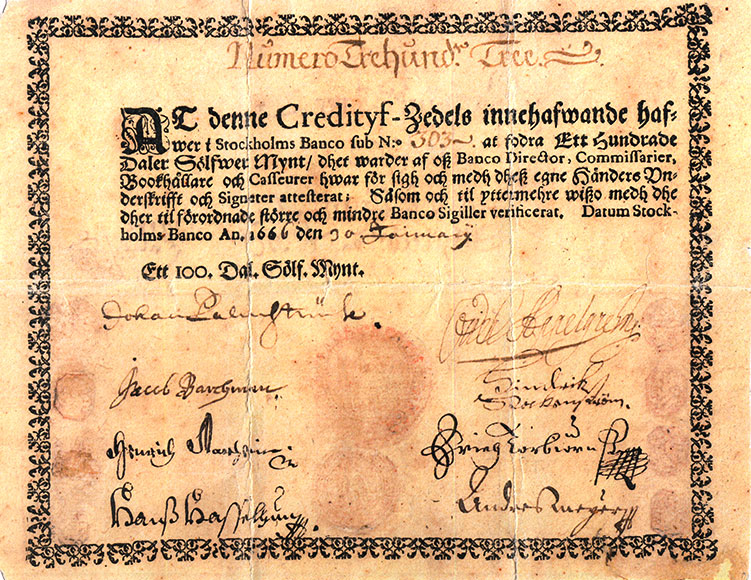 Numero Trehundr. Tree.
AT denne Credityf-Zedels innehafwande haf-
wer i Stockholms Banco sub N:o 303 at fodra Ett Hundrade
Daler Sölfwer Mynt/ dhet warder af oß Banco Director, Commissarier,
Bookhållare och Casseurer hwar för sigh och medh dheß egne Händers Vn-
derskrifft och Signeter attesterat; Såsom och til yttermehre wißo medh dhe
dher til förordnade större och mindre Banco Sigiller verificerat. Datum Stock-
holms Banco An. 1666 den 30 Januarij
Ett 100. Dal. Sölf. Mynt.
Johan Palmstruch.
Jacob Barchman.
Hindrich
Henrich
Hanß Hasselgun
Andres Meyer